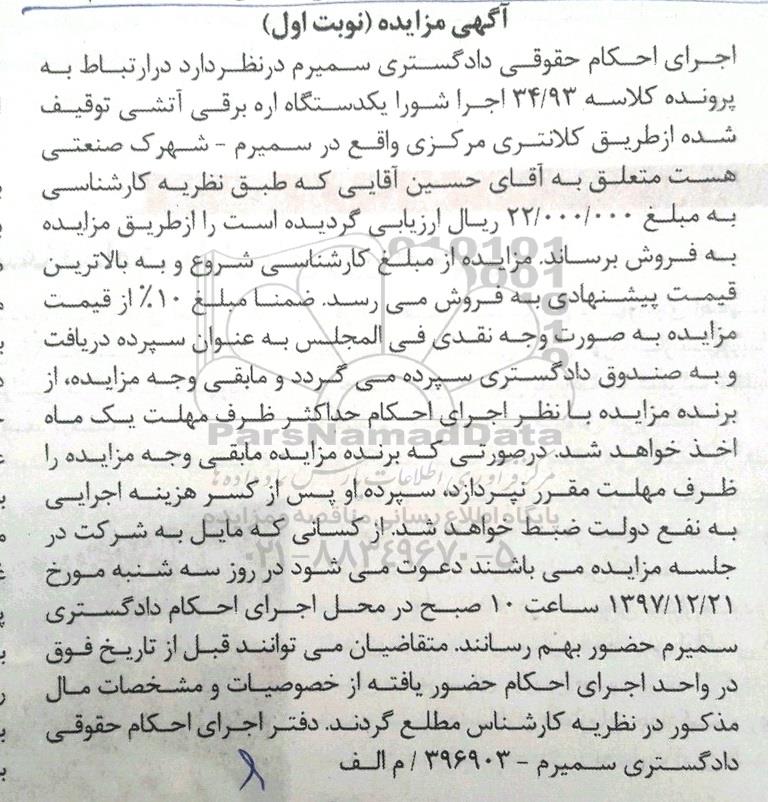 آگهی مزایده (نوبت اول)
اجرای احکام حقوقی دادگستری سمیرم درنظردارد درارتباط به
پرونده کلاسه ۳۴/۹۳ اجرا شورا یکدستگاه اره برقی آتشی توقیف
شده ازطریق کلانتری مرکزی واقع در سمیرم - شهرک صنعتی
هست متعلق به آقای حسین آقایی که طبق نظریه کارشناسی
به مبلغ ۲۲/۰۰۰/۰۰۰ ریال ارزیابی گردیده است را ازطریق مزایده
به فروش برساند. مزایده از مبلغ کارشناسی شروع و به بالاترین
قیمت پیشنهادی به فروش می رسد. ضمنا مبلغ ۱۰٪ از قیمت
مزایده به صورت وجه نقدی فی المجلس به عنوان سپرده دریافت
و به صندوق دادگستری سپرده می گردد و مابقی وجه مزایده، از
برنده مزایده با نظر اجرای احکام حداکثر ظرف مهلت یک ماه
اخذ خواهد شد. درصورتی که برنده مزایده مابقی وجه مزایده را
ظرف مهلت مقرر نپردازد، سپرده او پس از کسر هزینه اجرایی
به نفع دولت ضبط خواهد شد. از کسانی که مایل به شرکت در
جلسه مزایده می باشند دعوت می شود در روز سه شنبه مورخ
۱۳۹۷/۱۲/۲۱ ساعت ۱۰ صبح در محل اجرای احکام دادگستری
سمیرم حضور بهم رسانند. متقاضیان می توانند قبل از تاریخ فوق
در واحد اجرای احکام حضور یافته از خصوصیات و مشخصات مال
مذکور در نظریه کارشناس مطلع گردند. دفتر اجرای احکام حقوقی
دادگستری سمیرم - ۳۹۶۹۰۳ / م الف
ParsNamadData
پایگاه اطلاع رسانی مناقصه و مزایده
۰۲۱-۸۸۳۴۹۶۷۰-۵